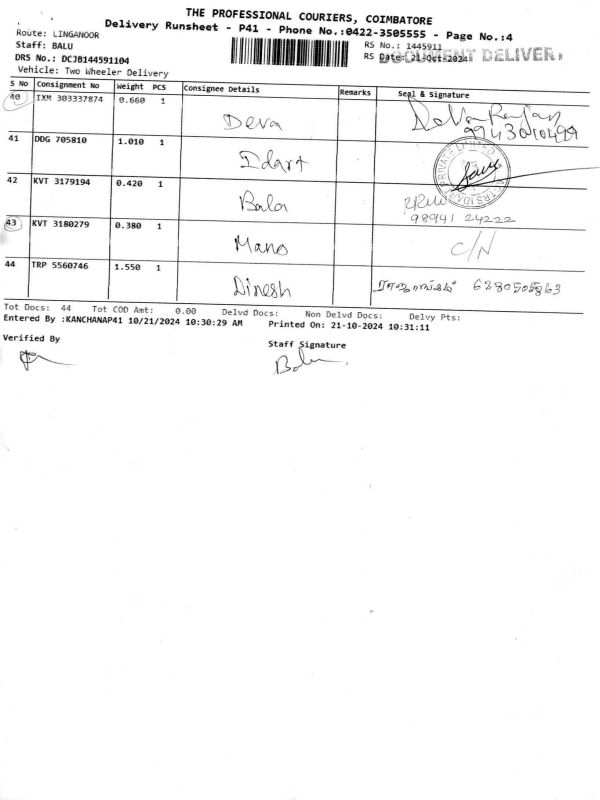 THE PROFESSIONAL COURIERS, COIMBATORE
Delivery Runsheet - P41 - Phone No.:0422-3505555 - Page No.:4
Route: LINGANOOR
RS No.: 1445911
Staff: BALU
RS Date: 21-Oct-2024
DOCUMENT DELIVER
DRS No.: DCJB144591104
Vehicle: Two Wheeler Delivery
S No Consignment No Weight PCS Consignee Details Remarks Seal & Signature
40 IXM 303337874 0.660 1 Deva
41 DDG 705810 1.010 1 Idart
PRIVATE LIMITED
42 KVT 3179194 0.420 1 Bala
98941 24222
43 KVT 3180279 0.380 1 Mano C/N
44 TRP 5560746 1.550 1 Dinesh 6380505863
Tot Docs: 44 Tot COD Amt: 0.00 Delvd Docs: Non Delvd Docs: Delvy Pts:
Entered By :KANCHANAP41 10/21/2024 10:30:29 AM Printed On: 21-10-2024 10:31:11
Verified By
Staff Signature
Balu